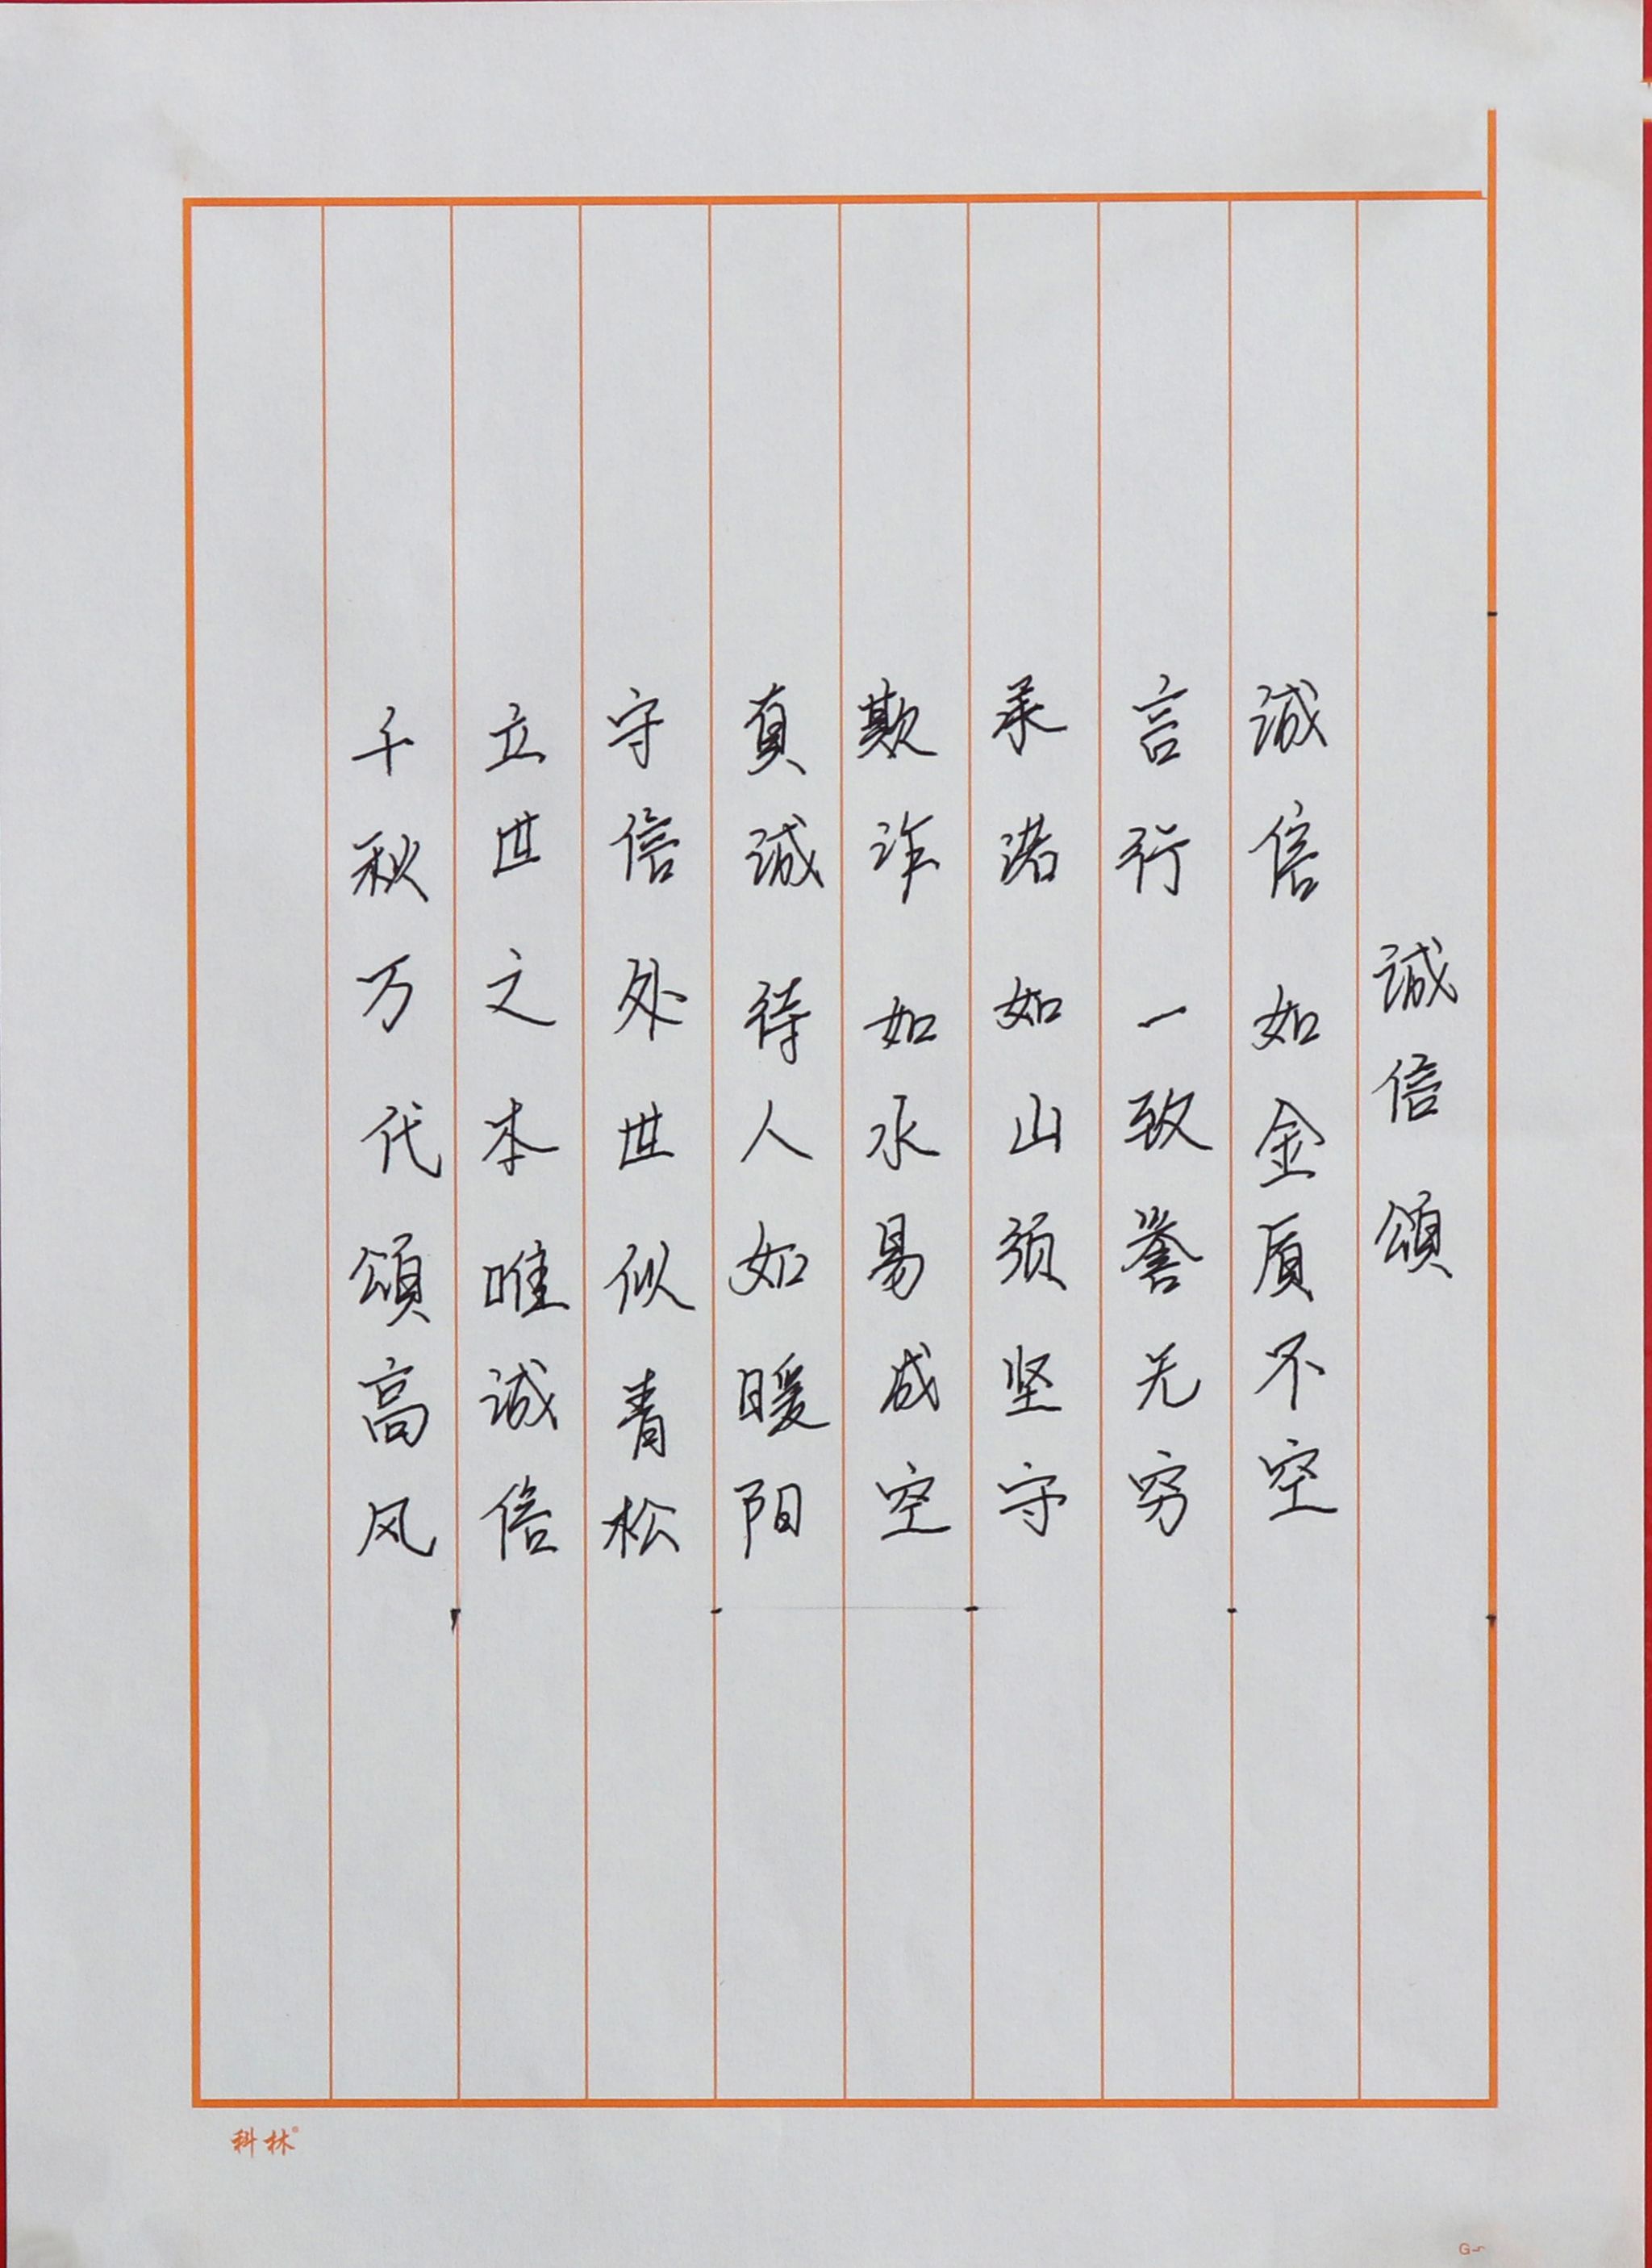 诚信颂
诚信如金质不空
言行一致誉无穷
承诺如山须坚守
欺诈如水易成空
真诚待人如暖阳
守信处世似青松
立世之本唯诚信
千秋万代颂高风
科林®